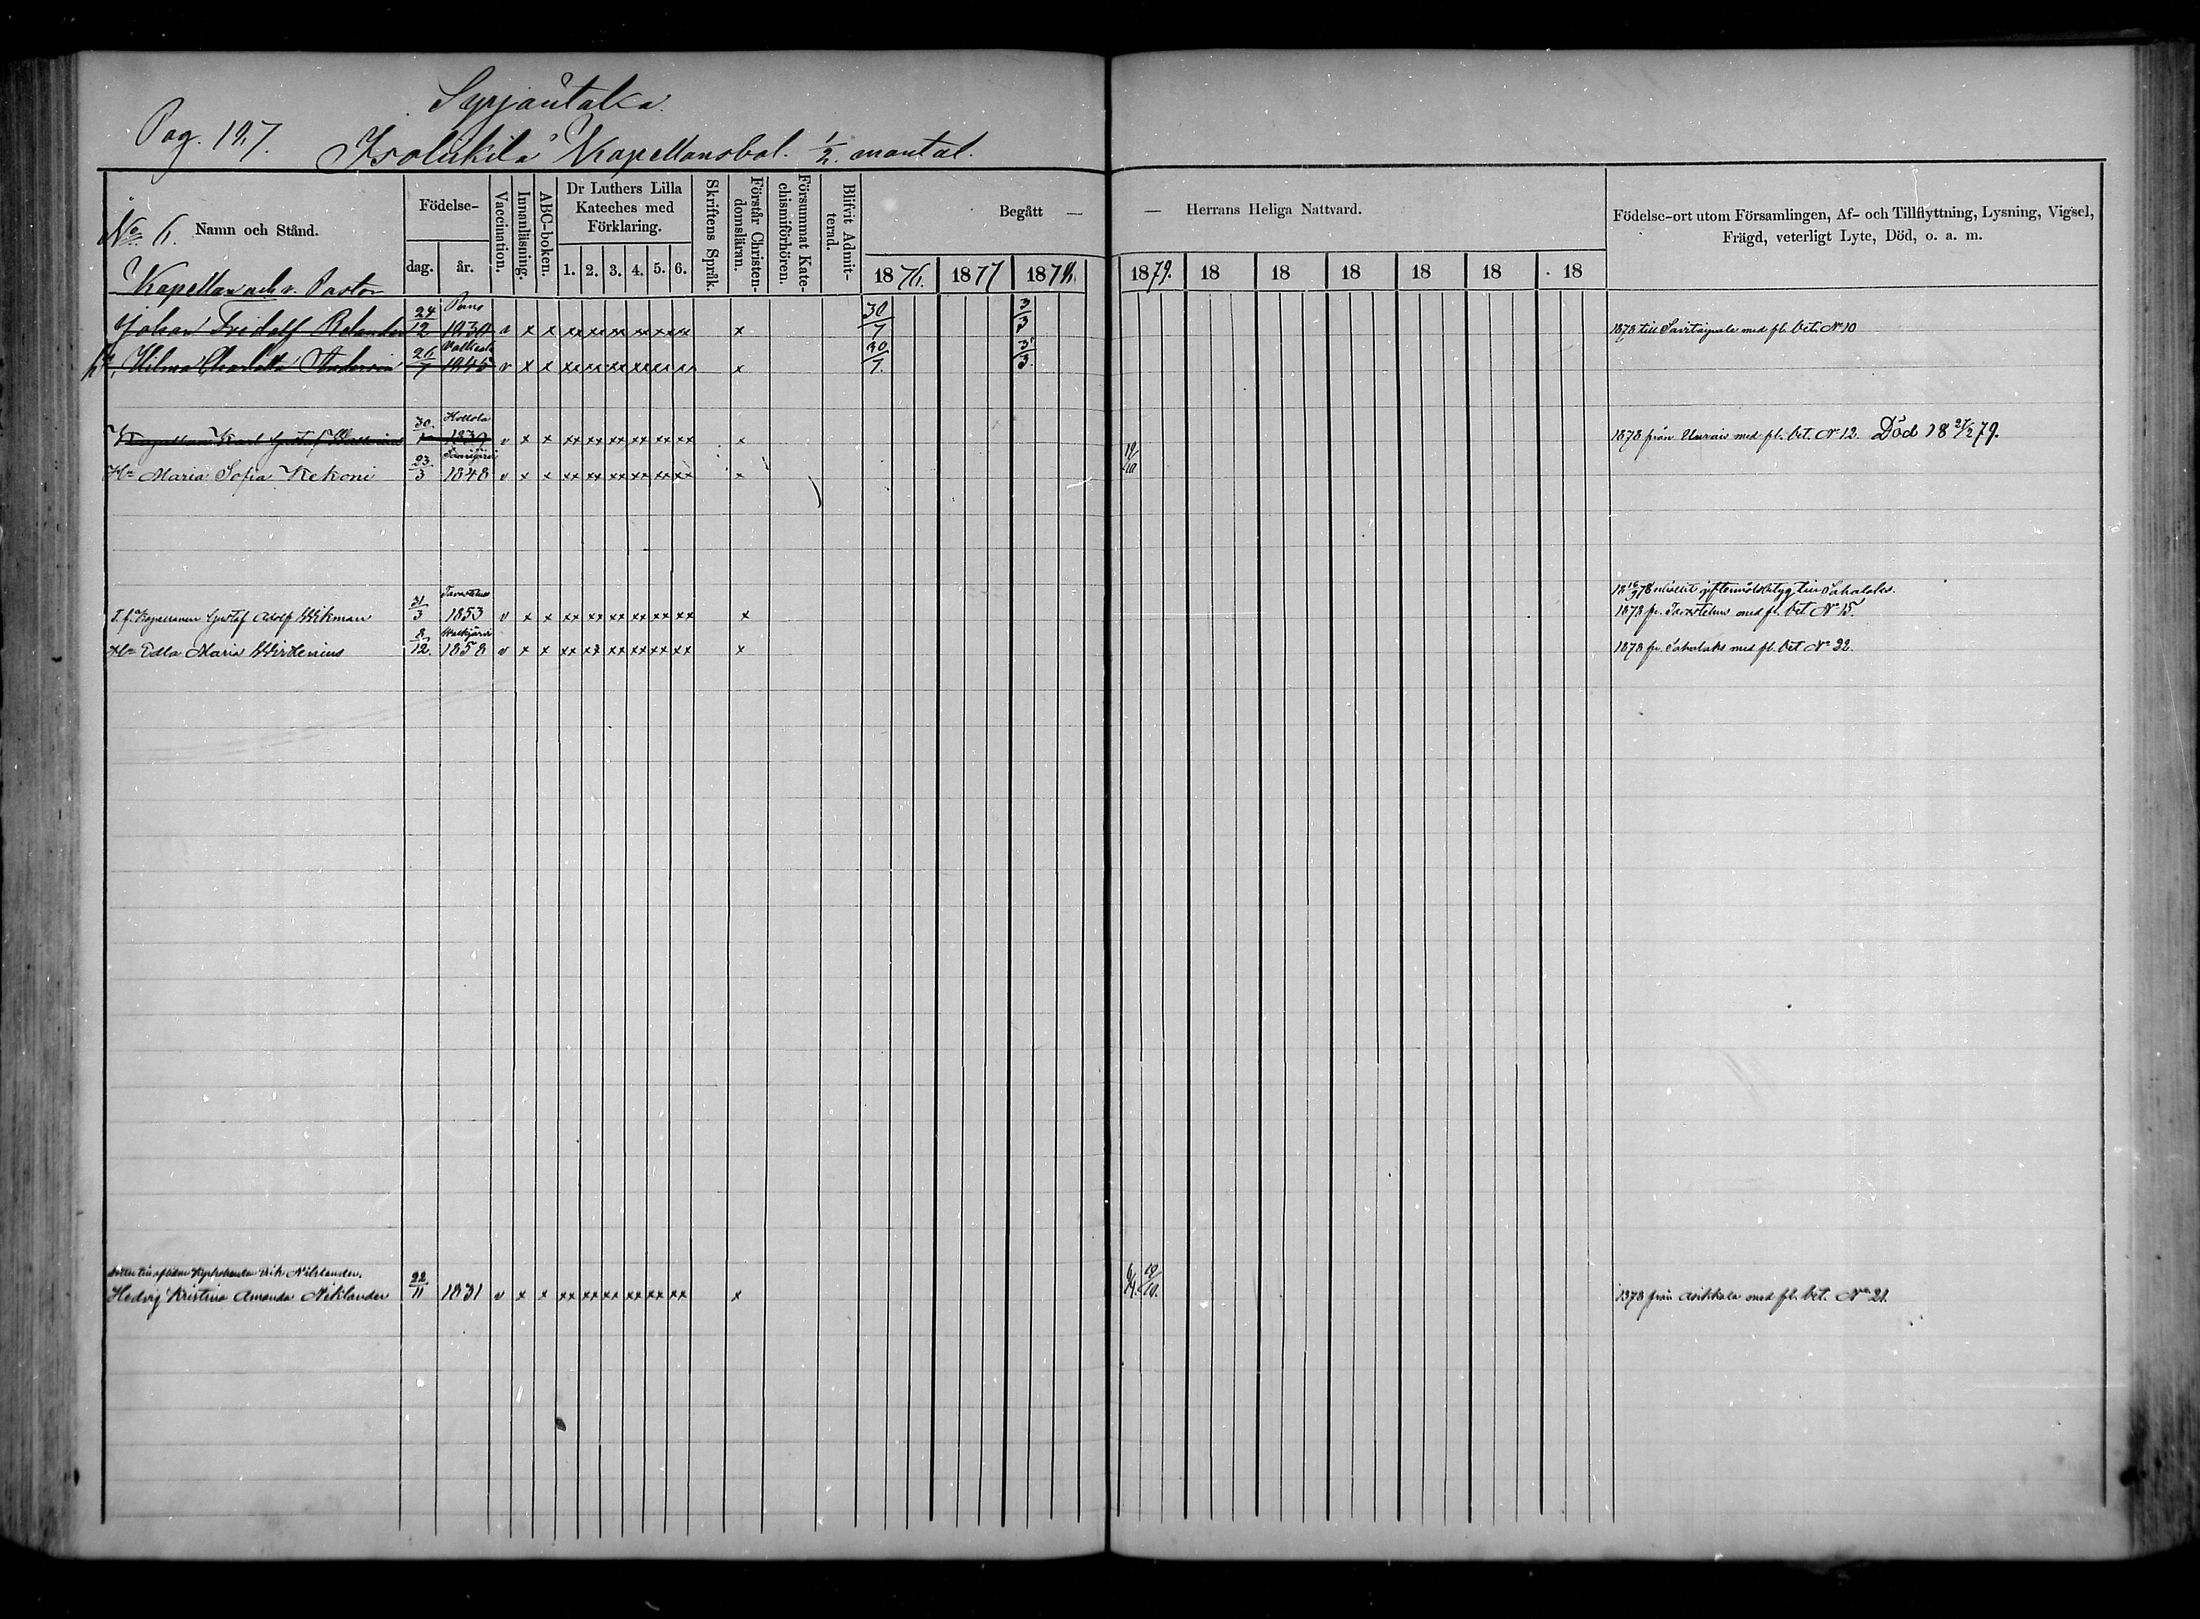 Syrjäntaka.
Pag. 127.
Isolukila Kapellansbol. 1/2. mantal.
No 6. Namn och Stånd.
Födelse-
dag. år.
Vaccination.
Innanläsning.
ABC-boken.
Dr Luthers Lilla
Kateches med
Förklaring.
1. 2. 3. 4. 5. 6.
Skriftens Språk.
Förstår Christen-
domsläran.
Försummat Kate-
chismiförhören.
Blifvit Admit-
terad.
Begått —
1876. 1877 1878.
— Herrans Heliga Nattvard.
1879. 18 18 18 18 18 18
Födelse-ort utom Församlingen, Af- och Tillflyttning, Lysning, Vigsel,
Frägd, veterligt Lyte, Död, o. a. m.
Kapellan och v. Pastor
Johan Fridolf Relander 24/12 v x x xx xx xx xx xx xx x 30/7 3/3 1878 till Savitaipale med fl. bet. No 10
Hilma Charlotta 26/7 1845 v x x xx xx xx xx xx xx x 30/7. 3/3.
Kapellan Karl Gustaf 30. Hollola 1839 v x x xx xx xx xx xx xx x 1878 från med fl. bet. No 12. Död 18 27/2 79.
Hu Maria Sofia Kekoni 23./3 1848 v x x xx xx xx xx xx xx x 19/10
18 16/9 78 till Sahalaks.
T. f. Kapellanen Gustaf Adolf Wikman 31/3 Tavastehus 1853 v x x xx xx xx xx xx xx x 1878 fr. Tavastehus med fl. bet No 15.
Hu Edla Maria Wirzenius 8/12. Walkjärvi 1858 v x x xx xx xx xx xx xx x 1878 fr. Sahalaks med fl. bet No 32.
Dotter till aflidne Erik Niklander.
Hedvig Kristina Amanda Niklander 22./11 1831 v x x xx xx xx xx xx xx x 6/4. 19/10. 1878 från Asikkala med fl. bet. No 21.